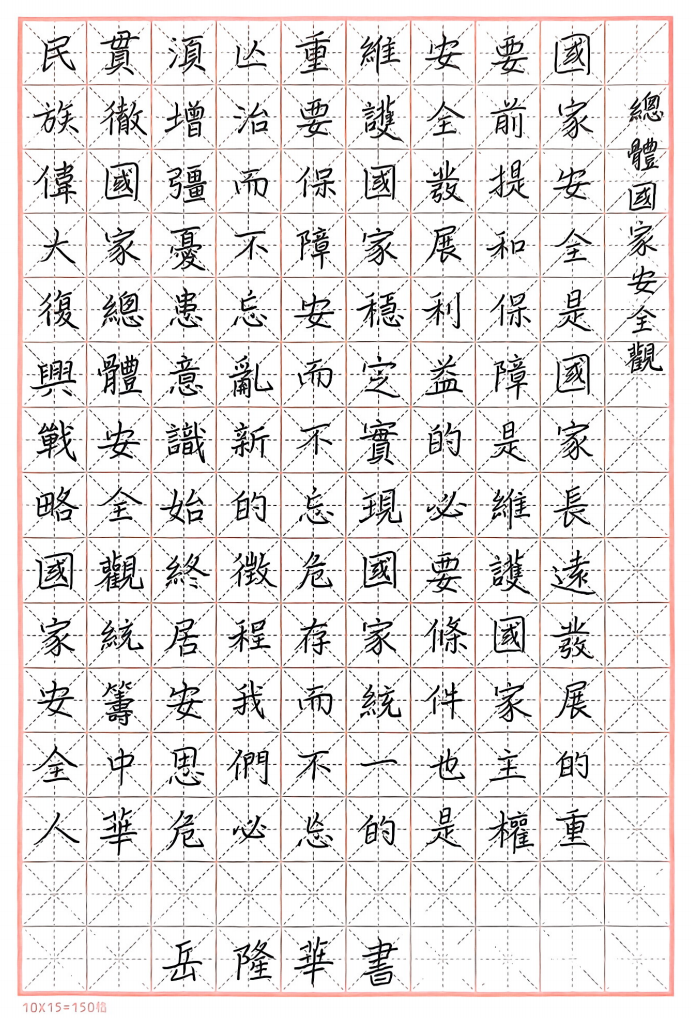 總體國家安全觀
國家安全是國家長遠發展的重
要前提和保障是維護國家主權
安全發展利益的必要條件也是
維護國家穩定實現國家統一的
重要保障安而不忘危存而不忘
亾治而不忘亂新的徵程我們必
湏增彊憂患意識始終居安思危
貫徹國家總體安全觀統籌中華
民族偉大復興戰略國家安全人
岳隆華書
10X15=150格